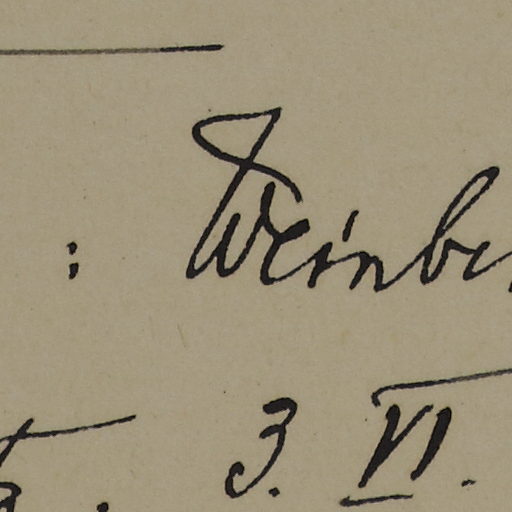 : Weinbe
3. VI.